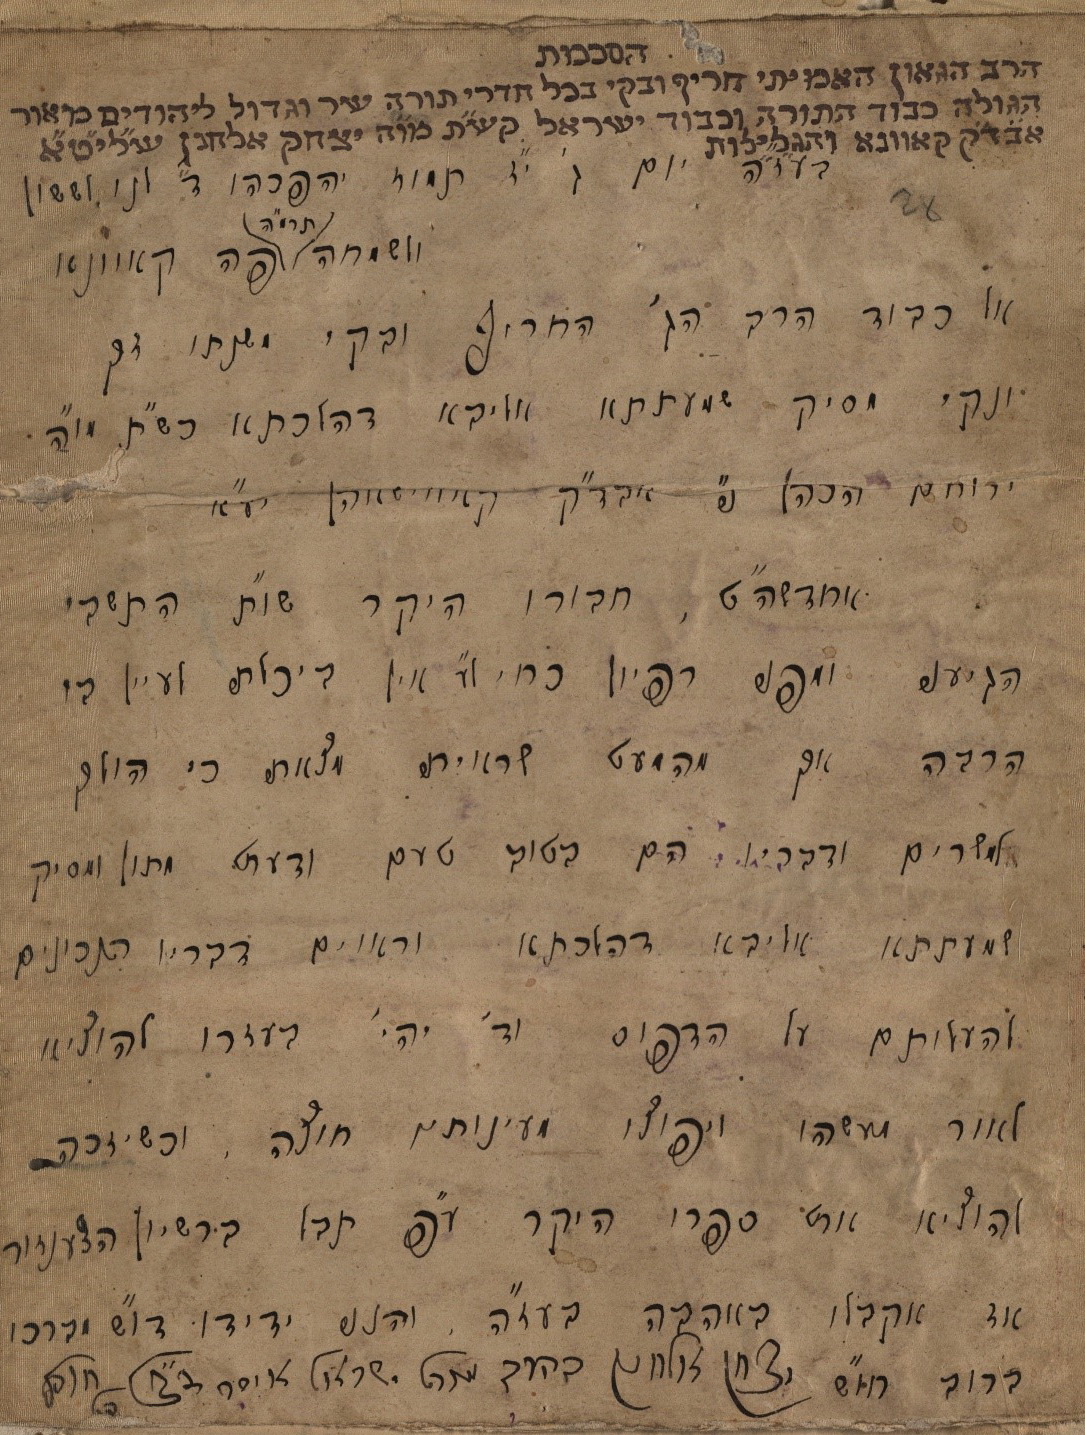 הסכמות
הרב הגאון האמיתי חריף ובקי בכל חדרי תורה שר וגדול ליהודים מאור
הגולה כבוד התורה וכבוד ישראל קש״ת מו״ה יצחק אלחנן שליט״א
אבד״ק קאוונא והגלילות
בעז״ה יום ג׳ י״ז תמוז יהפכהו ד׳ לנו לששון
(תרמ״ה)
ולשמחה פה קאוונא
אל כבוד הרב הג׳ החריף ובקי משנתו זך
ונקי מסיק שמעתתא אליבא דהלכתא כש״ת מו״ה
ירוחם הכהן נ״י אבד״ק יע״א
אחדשה״ט, חבורו היקר שו״ת התשבי
הגיעני ומפני רפיון כחי ל״ע אין ביכלתי לעיין בו
הרבה אך מהמעט שראיתי מצאתי כי הולך
למשרים ודבריו הם בטוב טעם ודעת מתון ומסיק
שמעתתא אליבא דהלכתא וראוים דבריו הנכונים
להעלותם על הדפוס וד׳ יהי׳ בעזרו להוציא
לאור מעשהו ויפוצו מעינותיו חוצה, וכשיזכה
להוציא אורו ספרו היקר ע״פ תבל ברשיון הצענזור
אז אקבלו באהבה בעז״ה. והנני ידידו דו״ש מברכו
ברוב יצחק אלחנן בהרב מו״ה ישראל איסר חופק